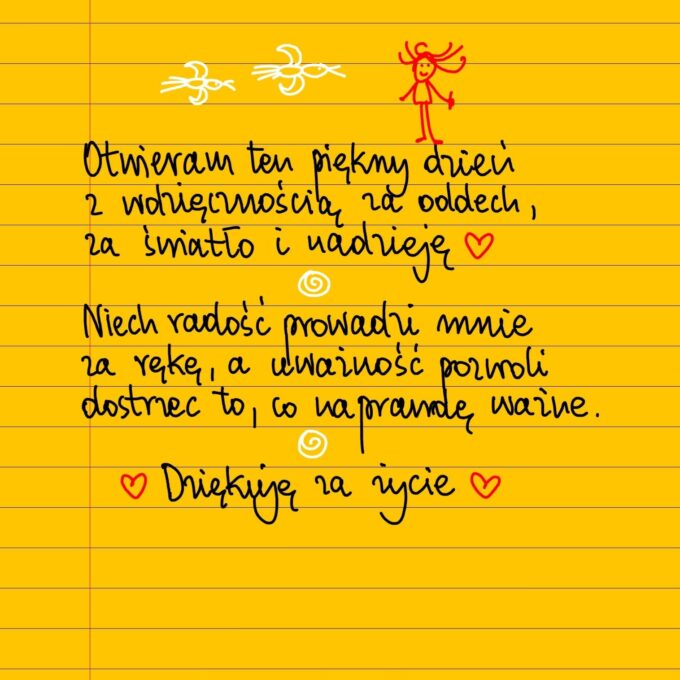 Otwieram ten piękny dzień
z wdzięcznością za oddech,
za światło i nadzieję
Niech radość prowadzi mnie
za rękę, a uważność pozwoli
dostrzec to, co naprawdę ważne.
Dziękuję za życie